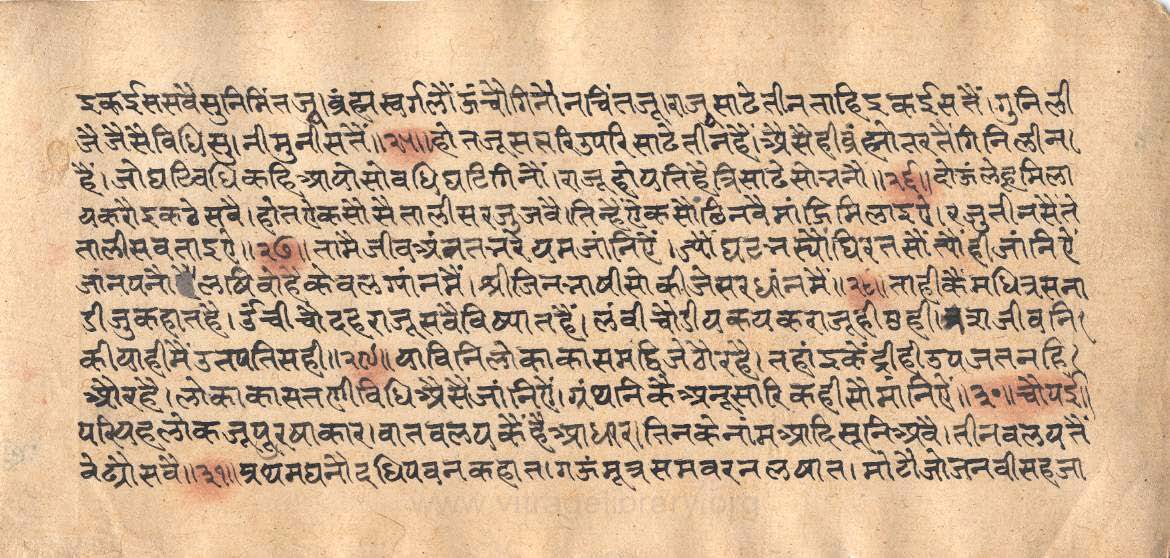 इकईससवैसुनिमिंतजू।ब्रंह्मस्वर्गलौंऊंचौगिनौनचिंतजू।राजूसाढेतीनताहिइकईसतैं।गुनिली
जैजैसैंविधिसु।नीमुनीसतैं॥२५॥होतजूसबपरिउपरिसाढेतीनहैं।अैसैहीब्रंह्मोतरतैंगिनिलीन।
हैं।जोघटिवधिकहिआयोसोवधिघटिगिनौं।राजूहोयतिहैत्रिसाढेसोन्ननौ॥२६॥दोऊंलेहूमिला
यकरौइकठेसवै।होतऐकसौसैतालीसरजुजवै।तिन्हैऐकसौछिनवैमांहिमिलाइऐ।रजुतीनसैतें
तालीसवताइऐ॥२७॥तामैजीवअंनतनरेयमजांनिऐं।ज्यौंघटनस्यौंघिरतसौंत्यौंहीजांनिऐं
जांनपनौलषिवोहैकेवलग्यांनमैं।श्रीजिनभाषीसोकीजेसरधांनमैं॥२८॥ताहीकैंमधित्रसना
डीजुकहातहै।ऊंचीचौदहराजूसवैविष्यातहैं।लंवीचौडीयकयकराजूहीछही।त्रसजीवनि।
कीयाहीमैंउतपतिसही॥२९॥याविनिलोकाकासमद्दिजेठौरहै।तहांइकेंद्रीहीउपजतनहि।
औरहै।लोकाकासतणीविधिअैसैजांनिऐं।ग्रंथनिकैअनूसारिकहीसौमांनिऐं॥३०॥चौपई॥
परियिहलोकजूपुरषाकार।वातवलयकैंहैंआधार।तिनकेनांमआदिसूनिअवै।तीनवलयतैं
वेढ्यौसवै॥३१॥प्रथमघनौदधिपवनकहात।गऊंमूत्रसमवरनलषात।मोटौजोजनवीसहजा
www.vitragelibrary.org